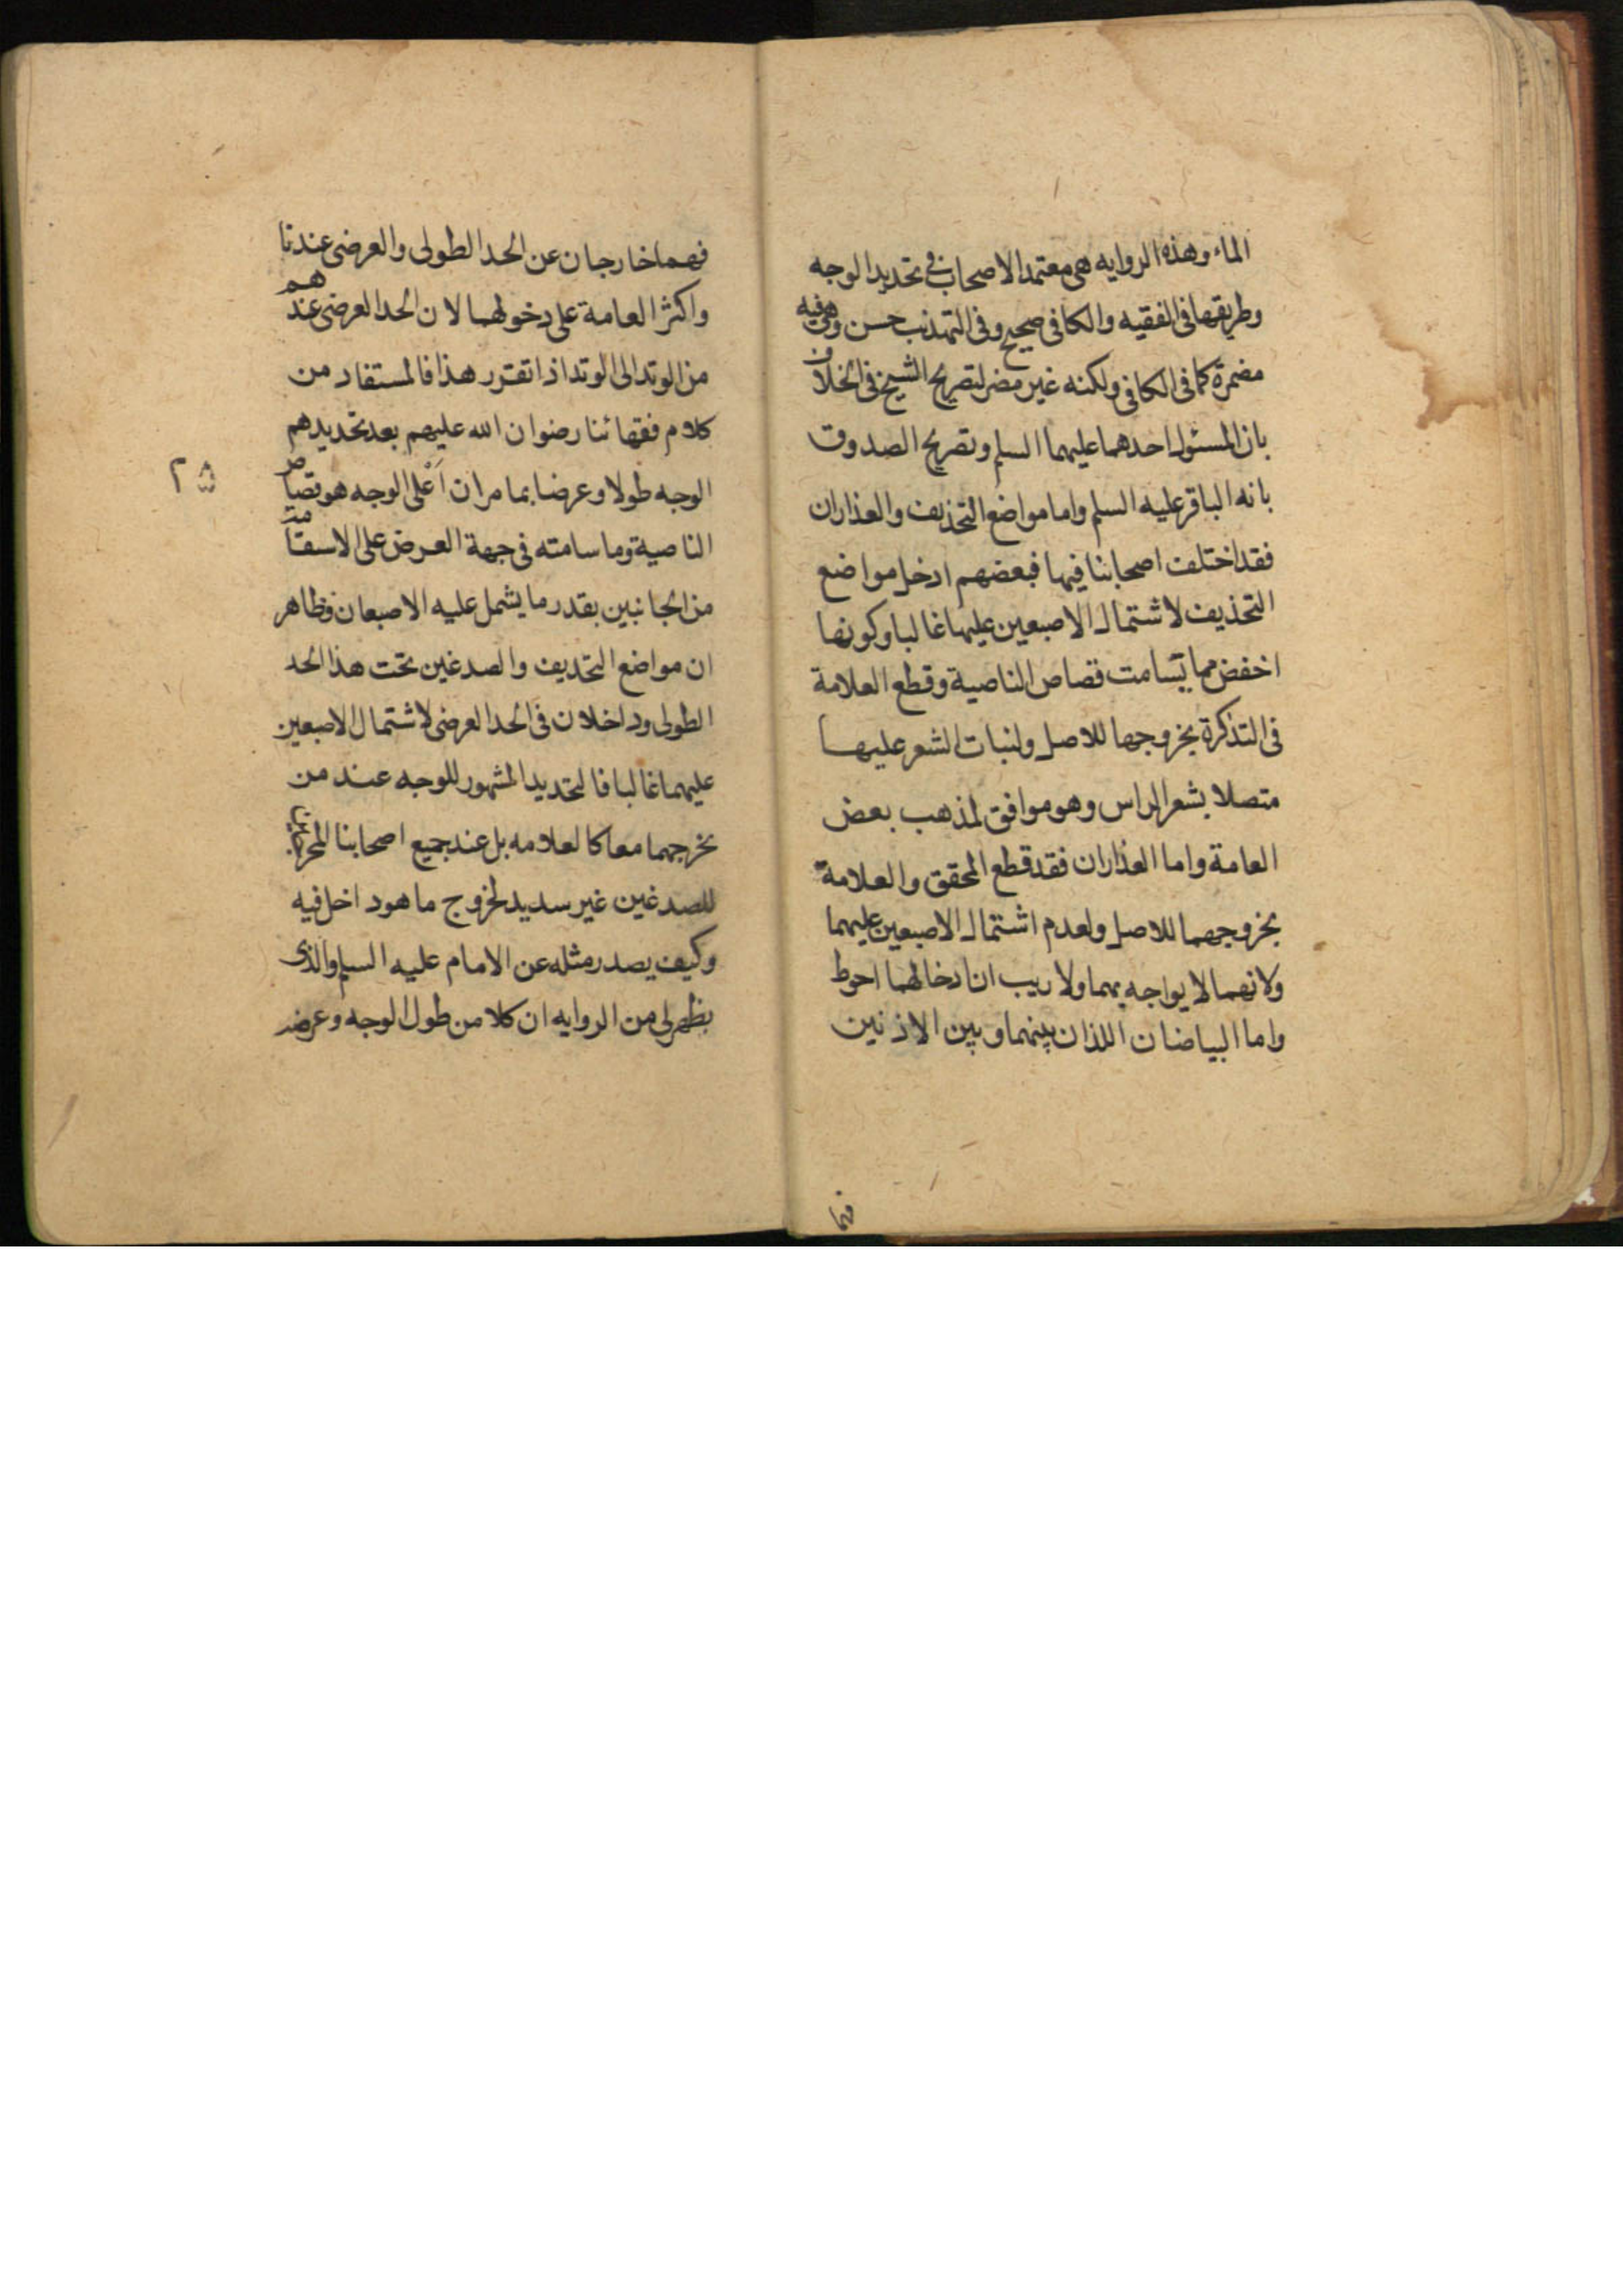 الماء وهذه الروايه هى معتمد الاصحاب فى تحديد الوجه
وطريقها فى الفقيه والكافى صحيح وفى التهذيب حسن وهى فيه
مضمرة كما فى الكافى ولكنه غير مضر لتصريح الشيخ فى الخلاف
بان المسئول احدهما عليهما السلم وتصريح الصدوق
بانه الباقر عليه السلم واما مواضع التحذيف والعذاران
فقد اختلف اصحابنا فيها فبعضهم ادخل مواضع
التحذيف لاشتمال الاصبعين عليها غالبا وكونها
اخفض مما يتسامت قصاص الناصية وقطع العلامة
فى التذكرة بخروجها للاصل ولنبات الشعر عليها
متصلا بشعر الراس وهو موافق لمذهب بعض
العامة واما العذاران فقد قطع المحقق والعلامة
بخروجهما للاصل ولعدم اشتمال الاصبعين عليهما
ولانهما لا يواجه بهما ولا ريب ان ادخالهما احوط
واما البياضان اللذان بينهما وبين الاذنين
فهما
فهما خارجان عن الحد الطولى والعرضى عندنا
واكثر العامة على دخولهما لان الحد العرضى عندهم
من الوتد الى الوتد اذا تقرر هذا فالمستفاد من
كلام فقهائنا رضوان الله عليهم بعد تحديدهم
الوجه طولا وعرضا بما مر ان اَعْلى الوجه هو قصاص
الناصية وما سامته فى جهة العرض على الاستقامة
من الجانبين بقدر ما يشمل عليه الاصبعان فظاهر
ان مواضع التحديف والصدغين تحت هذا الحد
الطولى وداخلان فى الحد العرضى لاشتمال الاصبعين
عليهما غالبا فالتحديد المشهور للوجه عند من
يخرجهما معا كالعلامه بل عند جميع اصحابنا المخرجين
للصدغين غير سديد لخروج ما هو داخل فيه
وكيف يصدر مثله عن الامام عليه السلم والذى
يظهر لى من الروايه ان كلا من طول الوجه وعرضه
٢٥